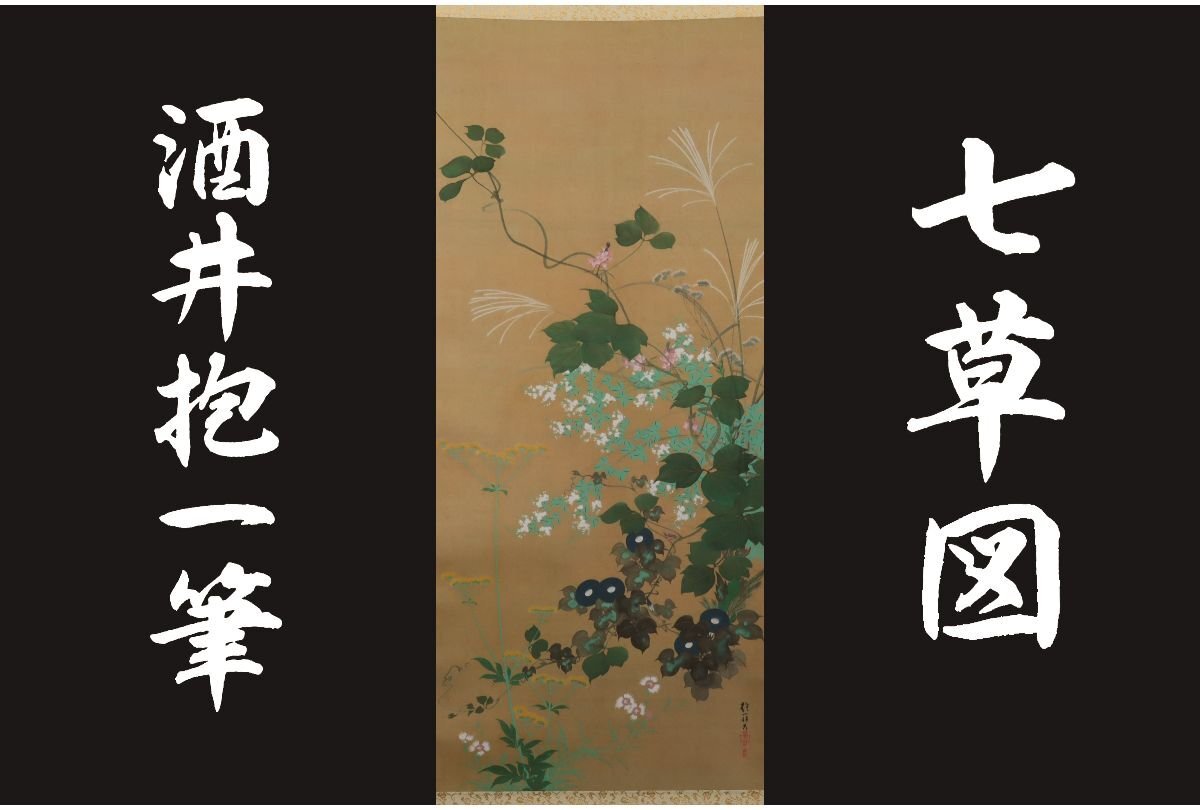 七草図
酒井抱一筆